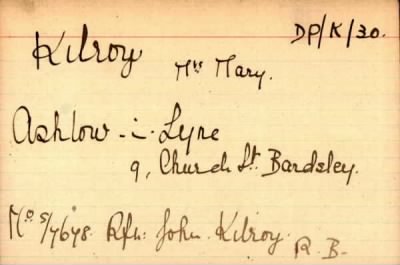 DP/K/30.
Kilroy
Mrs Mary.
Ashlow-i-Lyne
9, Church St. Bardsley.
Mo S/7678. Rfn: John Kilroy. R.B-